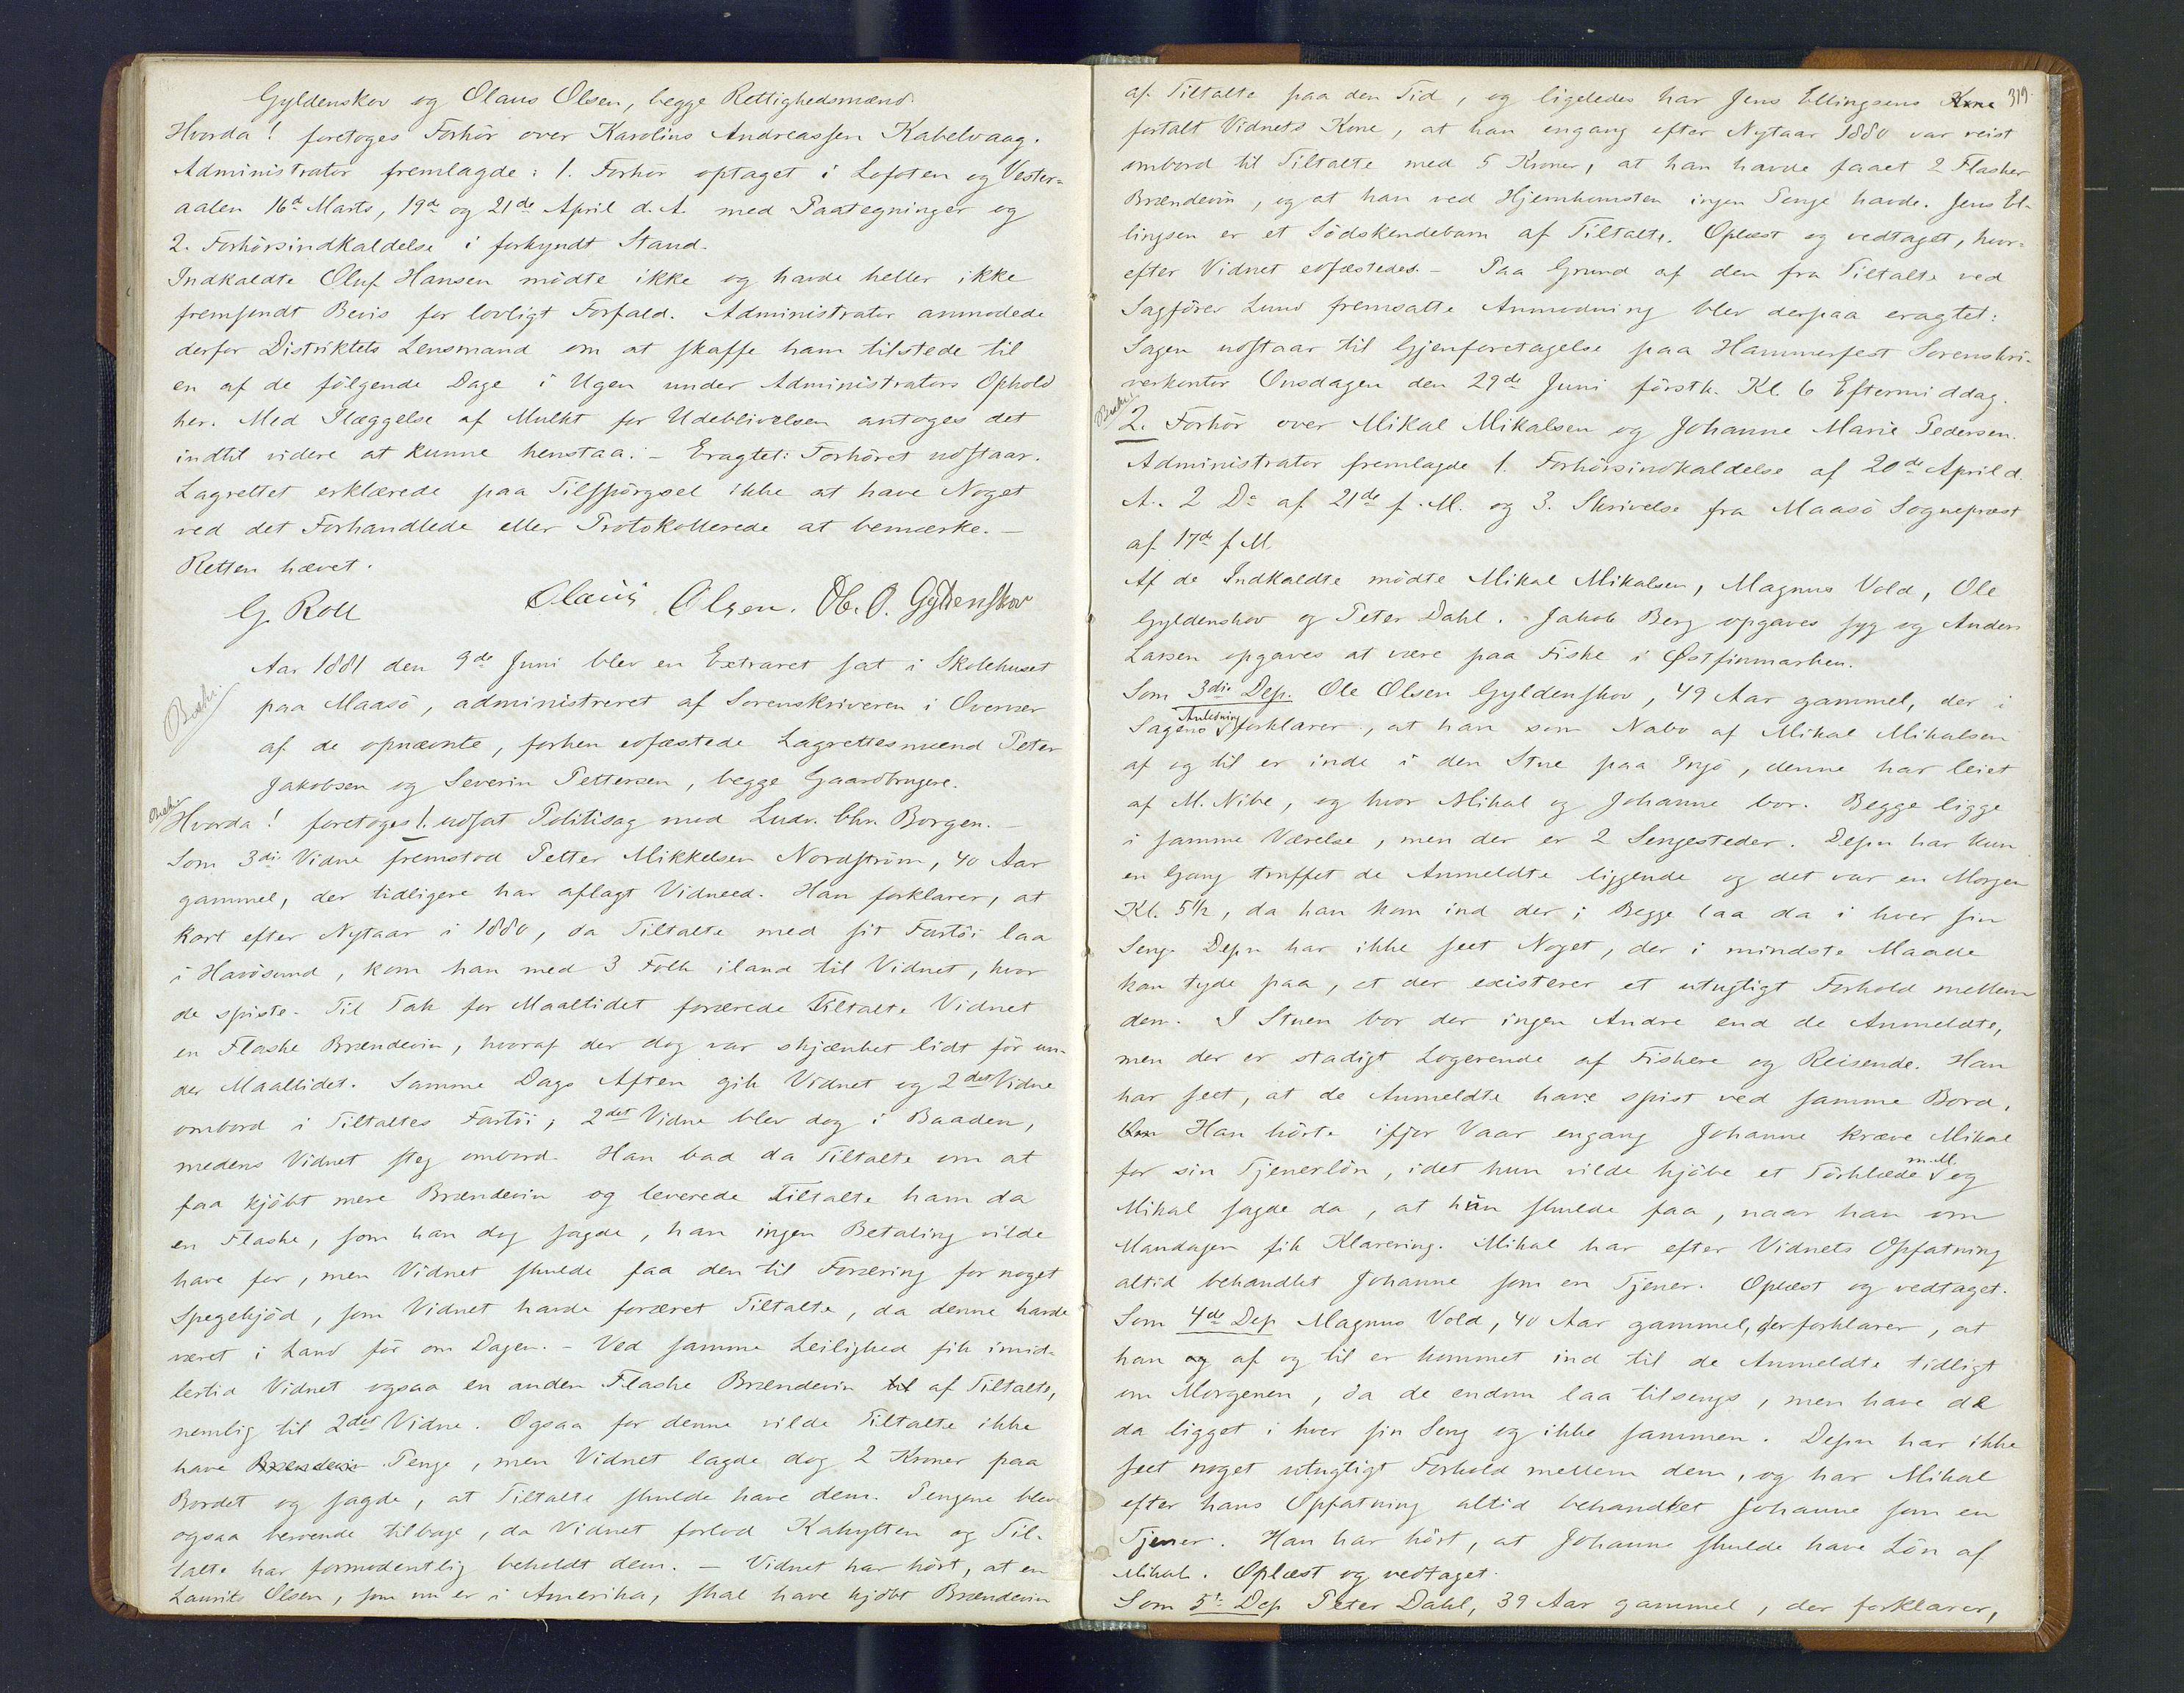 Gyldenskov og Olaus Olsen, begge Rettighedsmænd.
Hvorda! foretoges Forhör over Karolius Andreassen Kabelvaag.
Administrator fremlagde: 1. Forhör optaget i Lofoten og Vester-
aalen 16d Marts, 19de og 21de April d. A. med Paategninger og
2. Forhörsindkaldelse i forkyndt Stand.
Indkaldte Oluf Hansen mödte ikke og havde heller ikke
fremsendt Bevis for lovligt Forfald. Administrator anmodede
derfor Distriktets Lensmand om at skaffe ham tilstede til
en af de fölgende Dage i Ugen under Administrators Ophold
her. Med Ilæggelse af Mulkt for Udeblivelsen antoges det
indtil videre at kunne henstaa. – Eragtet: Forhöret udstaar.
Lagrettet erklærede paa Tilspörgsel ikke at have Noget
ved det Forhandlede eller Protokollerede at bemærke. –
Retten hævet.
G. Roll Olaus Olsen. Ole. O. Gyldenskov
Beskr.
Aar 1881 den 9de Juni blev en Extraret sat i Skolehuset
paa Maasö, administreret af Sorenskriveren i Overvær
af de opnævnte, forhen edfæstede Lagrettesmænd Peter
Jakobsen og Severin Pettersen, begge Gaardbrugere.
Beskr.
Hvorda! foretoges 1. udsat Politisag mod Ludv. Chr. Borgen. –
Som 3die Vidne fremstod Petter Mikkelsen Nordström, 40 Aar
gammel, der tidligere har aflagt Vidneed. Han forklarer, at
kort efter Nytaar i 1880, da Tiltalte med sit Fartöi laa
i Havösund, kom han med 3 Folk iland til Vidnet, hvor
de spiste. Til Tak for Maaltidet forærede Tiltalte Vidnet
en Flaske Brændevin, hvoraf der dog var skjænket lidt för un-
der Maaltidet. Samme Dags Aften gik Vidnet og 2det Vidne
ombord i Tiltaltes Fartöi; 2det Vidne blev dog i Baaden,
medens Vidnet steg ombord. Han bad da Tiltalte om at
faa kjöbt mere Brændevin og leverede Tiltalte ham da
en Flaske, som han dog sagde, han ingen Betaling vilde
have for, men Vidnet skulde faa den til Foræring for noget
Spegekjöd, som Vidnet havde foræret Tiltalte, da denne havde
været i Land för om Dagen. – Ved samme Leilighed fik imid-
lertid Vidnet ogsaa en anden Flaske Brændevin til af Tiltalte,
nemlig til 2det Vidne. Ogsaa for denne vilde Tiltalte ikke
have Brændevin Penge, men Vidnet lagde dog 2 Kroner paa
Bordet og sagde, at Tiltalte skulde have dem. Pengene blev
ogsaa beroende tilbage, da Vidnet forlod Kahytten og Til-
talte har formodentlig beholdt dem. – Vidnet har hört, at en
Laurits Olsen, som nu er i Amerika, skal have kjöbt Brændevin
319
af Tiltalte paa den Tid, og ligeledes har Jens Ellingsens Kone
fortalt Vidnets Kone, at han engang efter Nytaar 1880 var reist
ombord til Tiltalte med 5 Kroner, at han havde faaet 2 Flasker
Brændevin, og at han ved Hjemkomsten ingen Penge havde. Jens El-
lingsen er et Södskendebarn af Tiltalte. Oplæst og vedtaget, hvor-
efter Vidnet edfæstedes. – Paa Grund af den fra Tiltalte ved
Sagförer Lund fremsatte Anmodning blev derpaa eragtet:
Sagen udstaar til Gjenforetagelse paa Hammerfest Sorenskri-
verkontor Onsdagen den 29de Juni förstk. Kl. 6 Eftermiddag.
Beskr.
2. Forhör over Mikal Mikalsen og Johanne Marie Pedersen.
Administrator fremlagde 1. Forhörsindkaldelse af 20de April d.
A. 2 Do af 21de f. M. og 3. Skrivelse fra Maasö Sognepræst
af 17de f M.
Af de Indkaldte mödte Mikal Mikalsen, Magnus Vold, Ole
Gyldenskov og Peter Dahl. Jakob Berg opgaves syg og Anders
Larsen opgaves at være paa Fiske i Østfinmarken.
Som 3die Dep. Ole Olsen Gyldenskov, 49 Aar gammel, der i
Sagens Anledning forklarer, at han som Nabo af Mikal Mikalsen
af og til er inde i den Stue paa denne har leiet
af M. Nibe, og hvor Mikal og Johanne bor. Begge ligge
i samme Værelse, men der er 2 Sengesteder. Depn har kun
en Gang truffet de Anmeldte liggende og det var en Morgen
Kl. 5½, da han kom ind der; Begge laa da i hver sin
Seng. Depn har ikke seet Noget, der i mindste Maade
kan tyde paa, at der existerer et utugtigt Forhold mellem
dem. I Stuen bor der ingen Andre end de Anmeldte,
men der er stadigt Logerende af Fiskere og Reisende. Han
har seet, at de Anmeldte have spist ved samme Bord.
Han hörte ifjor Vaar engang Johanne kræve Mikal
for sin Tjenerlön, idet hun vilde kjöbe et Törklæde m.M. og
Mikal sagde da, at hun skulde faa, naar han om
Mandagen fik Klarering. Mikal har efter Vidnets Opfatning
altid behandlet Johanne som en Tjener. Oplæst og vedtaget.
Som 4de Dep Magnus Vold, 40 Aar gammel, der forklarer, at
han og af og til er kommet ind til de Anmeldte tidligt
om Morgenen, da de endnu laa tilsengs, men have de
da ligget i hver sin Seng og ikke sammen. Depn har ikke
seet noget utugtigt Forhold mellem dem, og har Mikal
efter hans Opfatning altid behandlet Johanne som en
Tjener. Han har hört, at Johanne skulde have Lön af
Mikal. Oplæst og vedtaget.
Som 5te Dep Peter Dahl, 39 Aar gammel, der forklarer,